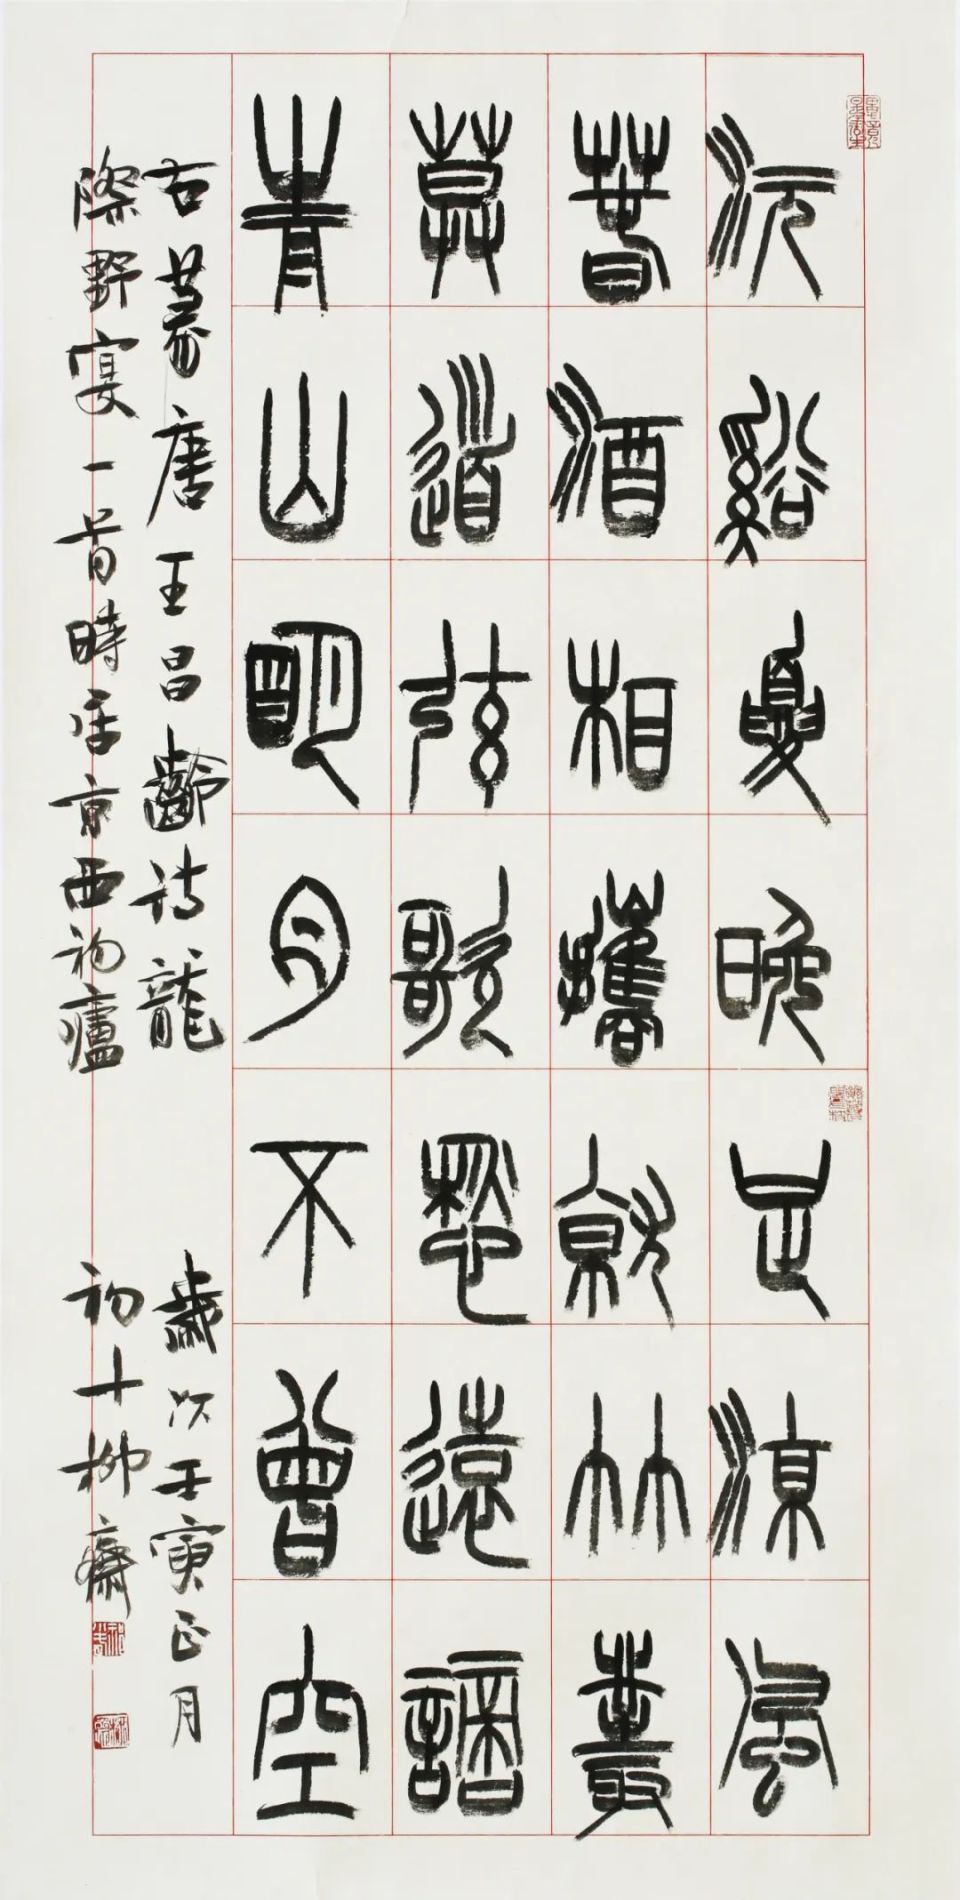 沅谿夏晚足涼風
春酒相攜就竹叢
莫道弦歌愁遠謫
青山明月不曾空
右篆唐王昌齡詩龍
際野宴一首時京西初廬
歲次壬寅正月
初十柳齋